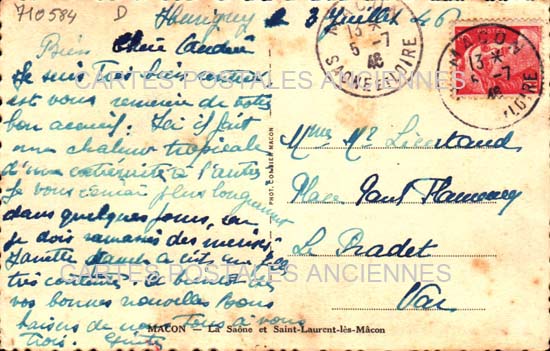 710584 D
le 3 Juillet 46
Bien Chère
Je suis très bien rentrée
est vous remercie de votre
bon accueil. Ici il fait
une chaleur tropicale
d'une extrémité à l'autre
Je vous plus longuement
dans quelques jours, car
je dois ramasser des
Janette a eu
très contente. A bientôt de
vos bonnes nouvelles Bons
baisers de nous tous à vous
trois.
PHOT. COMBIER MACON
MACON
13 *
5 - 7
46
SAONE ET LOIRE
MACON
13 *
5 - 7
46
LOIRE
Mme Lieutaud
Place Paul Flamencq
Le Pradet
Var
CARTES POSTALES ANCIENNES
CARTES POSTALES ANCIENNES
MACON - La Saône et Saint-Laurent-lès-Mâcon